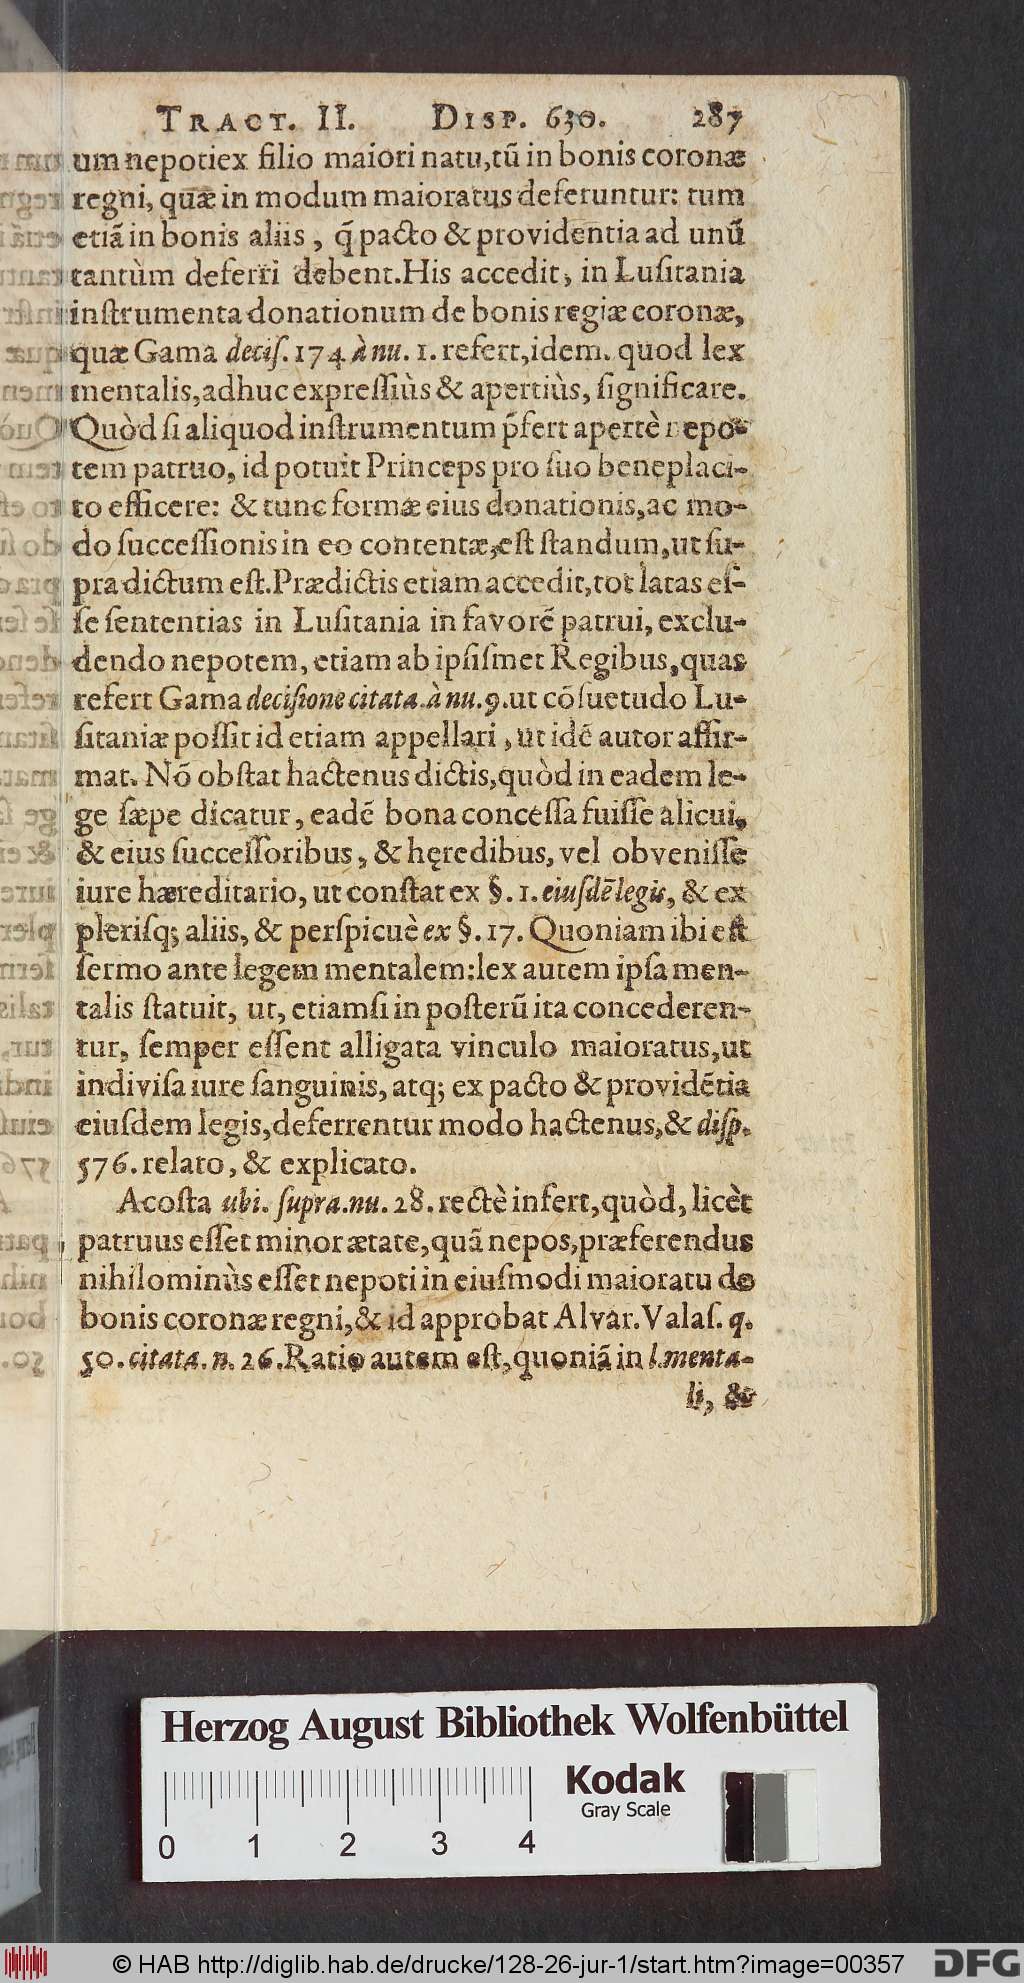 TRACT. II. DISP. 630. 287
um nepoti ex filio maiori natu, tũ in bonis coronæ
regni, quæ in modum maioratus deferuntur: tum
etiã in bonis aliis, q̃ pacto & providentia ad unũ
tantùm deferri debent. His accedit, in Lusitania
instrumenta donationum de bonis regiæ coronæ,
quæ Gama decis. 174. à nu. 1. refert, idem. quod lex
mentalis, adhuc expressiùs & apertiùs, significare.
Quòd si aliquod instrumentum p̃fert apertè nepo-
tem patruo, id potuit Princeps pro suo beneplaci-
to efficere: & tunc formæ eius donationis, ac mo-
do successionis in eo contentæ, est standum, ut su-
pra dictum est. Prædictis etiam accedit, tot latas es-
se sententias in Lusitania in favorẽ patrui, exclu-
dendo nepotem, etiam ab ipsismet Regibus, quas
refert Gama decisione citata. à nu. 9. ut cõsuetudo Lu-
sitaniæ possit id etiam appellari, ut idẽ autor affir-
mat. Nõ obstat hactenus dictis, quòd in eadem le-
ge sæpe dicatur, eadẽ bona concessa fuisse alicui,
& eius successoribus, & hęredibus, vel obvenisse
iure hæreditario, ut constat ex §. 1. eiusdẽ legis, & ex
plerisq; aliis, & perspicuè ex §. 17. Quoniam ibi est
sermo ante legem mentalem: lex autem ipsa men-
talis statuit, ut, etiamsi in posterũ ita concederen-
tur, semper essent alligata vinculo maioratus, ut
indivisa iure sanguinis, atq; ex pacto & providẽtia
eiusdem legis, deferrentur modo hactenus, & disp.
576. relato, & explicato.
Acosta ubi. supra. nu. 28. rectè infert, quòd, licèt
patruus esset minor ætate, quã nepos, præferendus
nihilominùs esset nepoti in eiusmodi maioratu de
bonis coronæ regni, & id approbat Alvar. Valas. q.
50. citata. n. 26. Ratio autem est, quoniã in l. menta-
li, &
Herzog August Bibliothek Wolfenbüttel
Kodak
Gray Scale
0 1 2 3 4
© HAB http://diglib.hab.de/drucke/128-26-jur-1/start.htm?image=00357
DFG